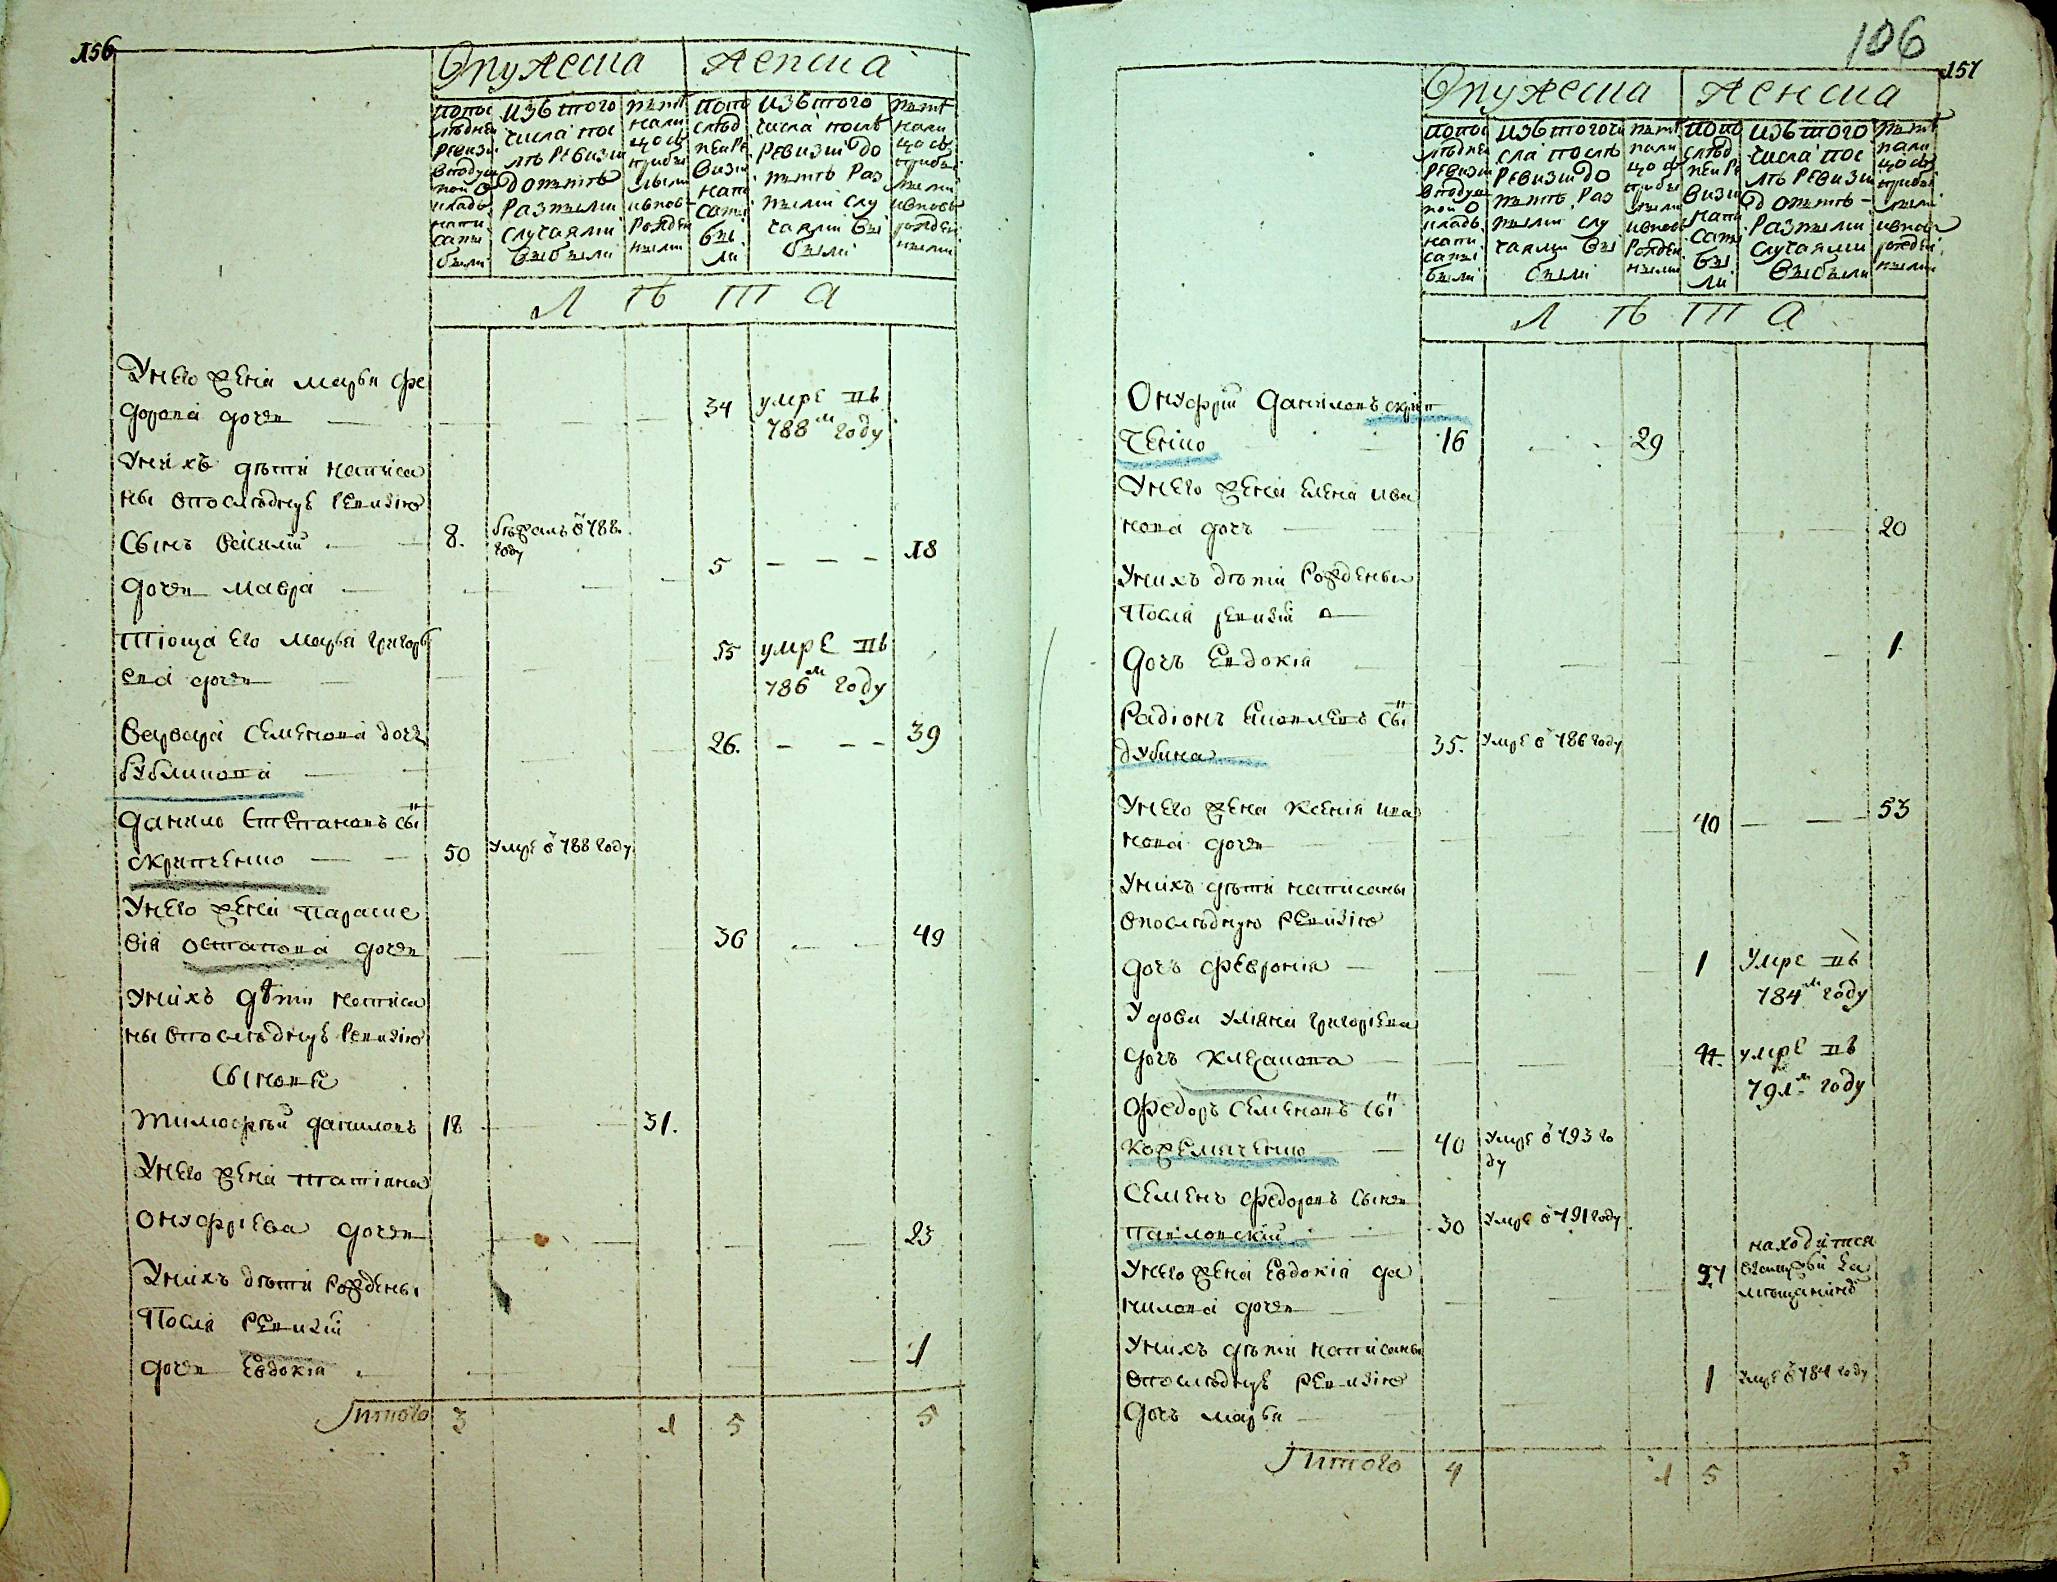 156
Мужеска Женска
попос
лѣдней
ревизи
вподуш
ной о
кладъ
напи
саны
были
изътого
числа пос
лѣ ревизи
до нынѣ
разными
случаями
выбыли
нынѣ
нали
цо съ
прибы
лыми
ивновь
рожден
ными
Попо
слѣд
ней ре
визи
напи
саны
бы
ли
изътого
числа послѣ
ревизии до
нынѣ раз
ными слу
чаями вы
были
нынѣ
нали
цо съ
прибы
лыми
ивновь
рожден
ными
Л Ѣ Т А
Унего жена марья фе
дорова дочь 34 умре въ
788м году
Унихъ дѣти написа
ны впослѣднуѣ ревизию
Сынъ василій 8. бѣжалъ в 788. году
дочь мавра 5 18
Тіоща его марья григорь
ева дочь 55 умре въ
786м году
Варвара Семенова дочь 26. 39
бубликова
Данило Степановъ сы
скрипченко 50 Умре в 788 году
Унего жена параске
вія остапова дочь 36 49
Унихъ дѣти написа
ны впослѣднуѣ ревизию
Сыновѣ
Тимофѣй даниловъ 18 31.
Унего жена татіана
Онуфріева дочь 23
Унихъ дѣти рождены
Послѣ ревизій
дочь Евдокія 1
Итого 3 1 5 5
106
157
Мужеска Женска
попос
лѣдней
ревизи
вподуш
ной о
кладъ
напи
саны
были
изътогочи
сла послѣ
ревизии до
нынѣ раз
ными слу
чаями вы
были
нынѣ
нали
цо съ
прибы
лыми
ивновь
рожден
ными
Попо
слѣд
ней ре
визи
напи
саны
бы
ли
изътого
числа пос
лѣ ревизи
до нынѣ
разными
случаями
выбыли
нынѣ
нали
цо съ
прибы
лыми
ивновь
рожден
ными
Л Ѣ Т А
Онуфрій даниловъ скрип
ченко 16 29
Унего жена елена ива
нова дочъ 20
Унихъ дѣти рождены
Послѣ ревизій
дочъ Евдокія 1
Радіонъ Яковлевъ сы
дубина 35. Умре в 786 году
Унего жена Ксенія ива
нова дочь 40 53
Унихъ дѣти написаны
впослѣдную ревизію
дочъ февронія 1 Умре въ
784м году
Удова уліяна григоріева
дочъ Клецакова 44. умре въ
791м году
Федоръ Семеновъ сы
кожемяченко 40 Умре в 793 го
ду
Семенъ федоровъ сынъ
павловскій 30 Умре в 791 году
Унего жена Евдокія да
нилова дочь 27 находится
взамужьи за
мѣщанино
Унихъ дѣти написаны
впослѣднуѣ ревизию
дочъ марья 1 Умре в 784 году
Итого 4 1 5 3